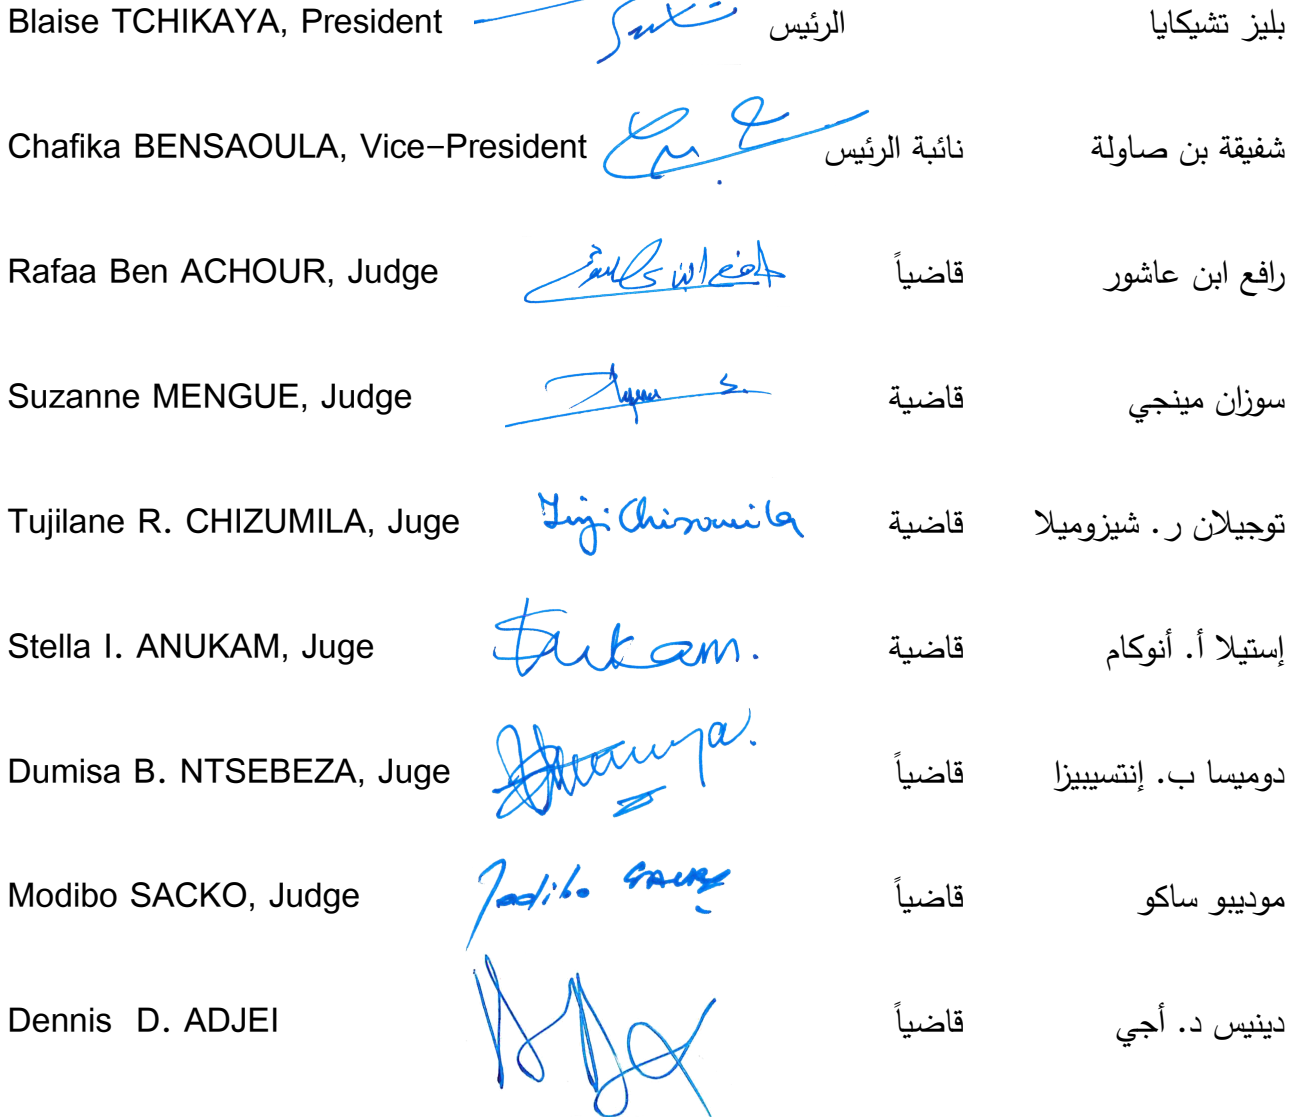 Blaise TCHIKAYA, President الرئيس بليز تشيكايا
Chafika BENSAOULA, Vice-President نائبة الرئيس شفيقة بن صاولة
Rafaa Ben ACHOUR, Judge قاضياً رافع ابن عاشور
Suzanne MENGUE, Judge قاضية سوزان مينجي
Tujilane R. CHIZUMILA, Juge Tuji Chizumila قاضية توجيلان ر. شيزوميلا
Stella I. ANUKAM, Juge قاضية إستيلا أ. أنوكام
Dumisa B. NTSEBEZA, Juge قاضياً دوميسا ب. إنتسيبيزا
Modibo SACKO, Judge Modibo SACKO قاضياً موديبو ساكو
Dennis D. ADJEI قاضياً دينيس د. أجي